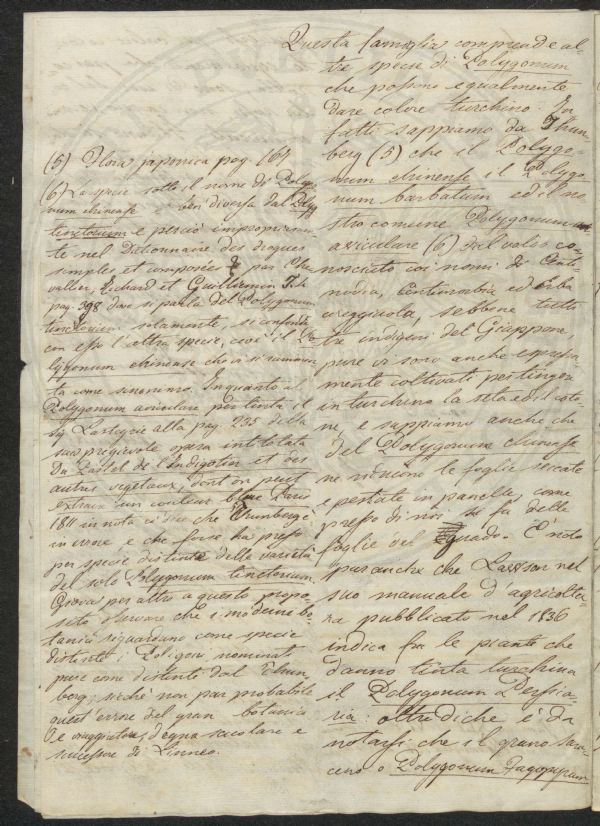 Questa famiglia comprende al-
tre specie di Polygonum
che possono egualmente
dare colore turchino. In
fatti sappiamo da Thun
berg (5) che il Polygo-
num chinense il Polygo
num barbatum ed il no
stro comune Polygonum
aviculare (6)
nosciuto coi nomi di Cent-
nodia, Centumorbia ed erba
correggiuola, sebbene tutti
tre indigeni del Giappone,
pure vi sono anche espressa
mente coltivati per tingere
in turchino la seta ed il coto-
ne, e sappiamo anche che
del Polygonum chinense
ne riducono le foglie seccate
e pestate in panelle, come
presso di noi si fa delle
foglie del guado. È noto
pur anche che nel
suo manuale d'agricoltu-
ra pubblicato nel 1836
indica fra le piante che
danno tinta turchina
il Polygonum Persica-
ria: oltredichè è da
notarsi che il grano sara
ceno o Polygonum Fagopyrum
(5) Flora japonica pag. 164
(6) La specie sotto il nome di Polygo-
num chinense è ben diversa dal Polyg
tinctorium e perciò impropriamen
te nel Dictionnaire des drogues
simples et composées par Che
vallier, Richard et Guillemin T. 4
pag. 398 dove si parla del Polygonum
tinctorium solamente, si confonde
con esso l'altra specie, cioè il Po
lygonum chinense che vi si rammen
ta come sinonimo. In quanto al
Polygonum aviculare pertinta il
sig Lasteyrie alla pag. 235 della
sua pregievole opera intitolata
Du Pastel de l'Indigotier et des
autres vegetaux, dont on peut
extraire un couleur bleue Paris
1811 in nota ci dice che Thunberg è
in errore, e che forse ha preso
per specie distinte delle varietà
del solo Polygonum tinctorium.
Giova per altro a questo propo-
sito osservare che i moderni bo-
tanici riguardano come specie
distinte i Poligoni nominati
pure come distinte dal Thun
berg; sicchè non par probabile
quest'errore del gran botanico
e viaggiatore, degno scolare e
successore di Linneo.